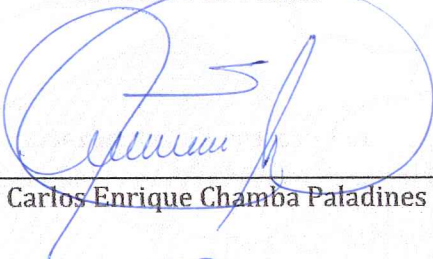 Carlos Enrique Chamba Paladines